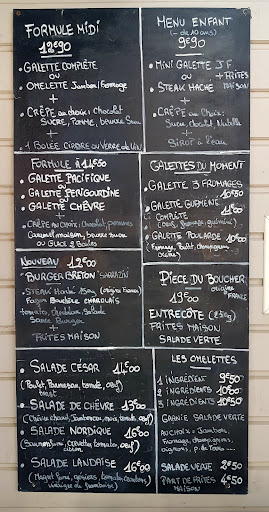 FORMULE MIDI
12€90
• GALETTE COMPLÈTE
OU
• OMELETTE Jambon/Fromage
+
• CRÊPE au choix: Chocolat
SUCRE, Pomme, beurre Sucre
+
• 1 BOLÉE CIDRE OU Verre de Vin
MENU ENFANT
(- de 10 ans)
9€90
• MINI GALETTE J F
OU + FRITES
• STEAK HACHÉ MAISON
+
• CRÊPE au Choix:
Sucre Chocolat Nutella
+
Sirop à l'eau
FORMULE à 14€50
• GALETTE PACIFIQUE
OU
• GALETTE PERIGOURDINE
OU
• GALETTE CHÈVRE
+
• CRÊPE AU CHOIX: Chocolat, pommes
Caramel maison, beurre sucre
OU GLACE 2 Boules
GALETTES DU MOMENT
• GALETTE 3 FROMAGES
10€50
• GALETTE GURMENE
COMPLÈTE 11€
• GALETTE POULARDE 10€50
(Fromage, Poulet, champignons
crème)
NOUVEAU 12€00
BURGER BRETON SARRAZIN
• STEAK Haché 150g (origine France)
Façon Bouchère CHAROLAIS
tomate, Cheddar, Salade
Sauce Burger
+
FRITES MAISON
PIÈCE DU BOUCHER
19€00 origine FRANCE
ENTRECÔTE
FRITES MAISON
SALADE VERTE
• SALADE CÉSAR 14€00
(Poulet, Parmesan, tomate, œuf)
• SALADE DE CHÈVRE 13€00
• SALADE NORDIQUE 16€00
(Saumon fumé, crevette, tomate, œuf
• SALADE LANDAISE 16€00
LES OMELETTES
1 INGRÉDIENT 9€50
2 INGRÉDIENTS 10€50
3 INGRÉDIENTS 10€50
GARNIE SALADE VERTE
AU CHOIX: Jambon,
Fromage, champignons,
oignons, p. de Terre...
SALADE VERTE 2€50
PART DE FRITES 4€50
MAISON